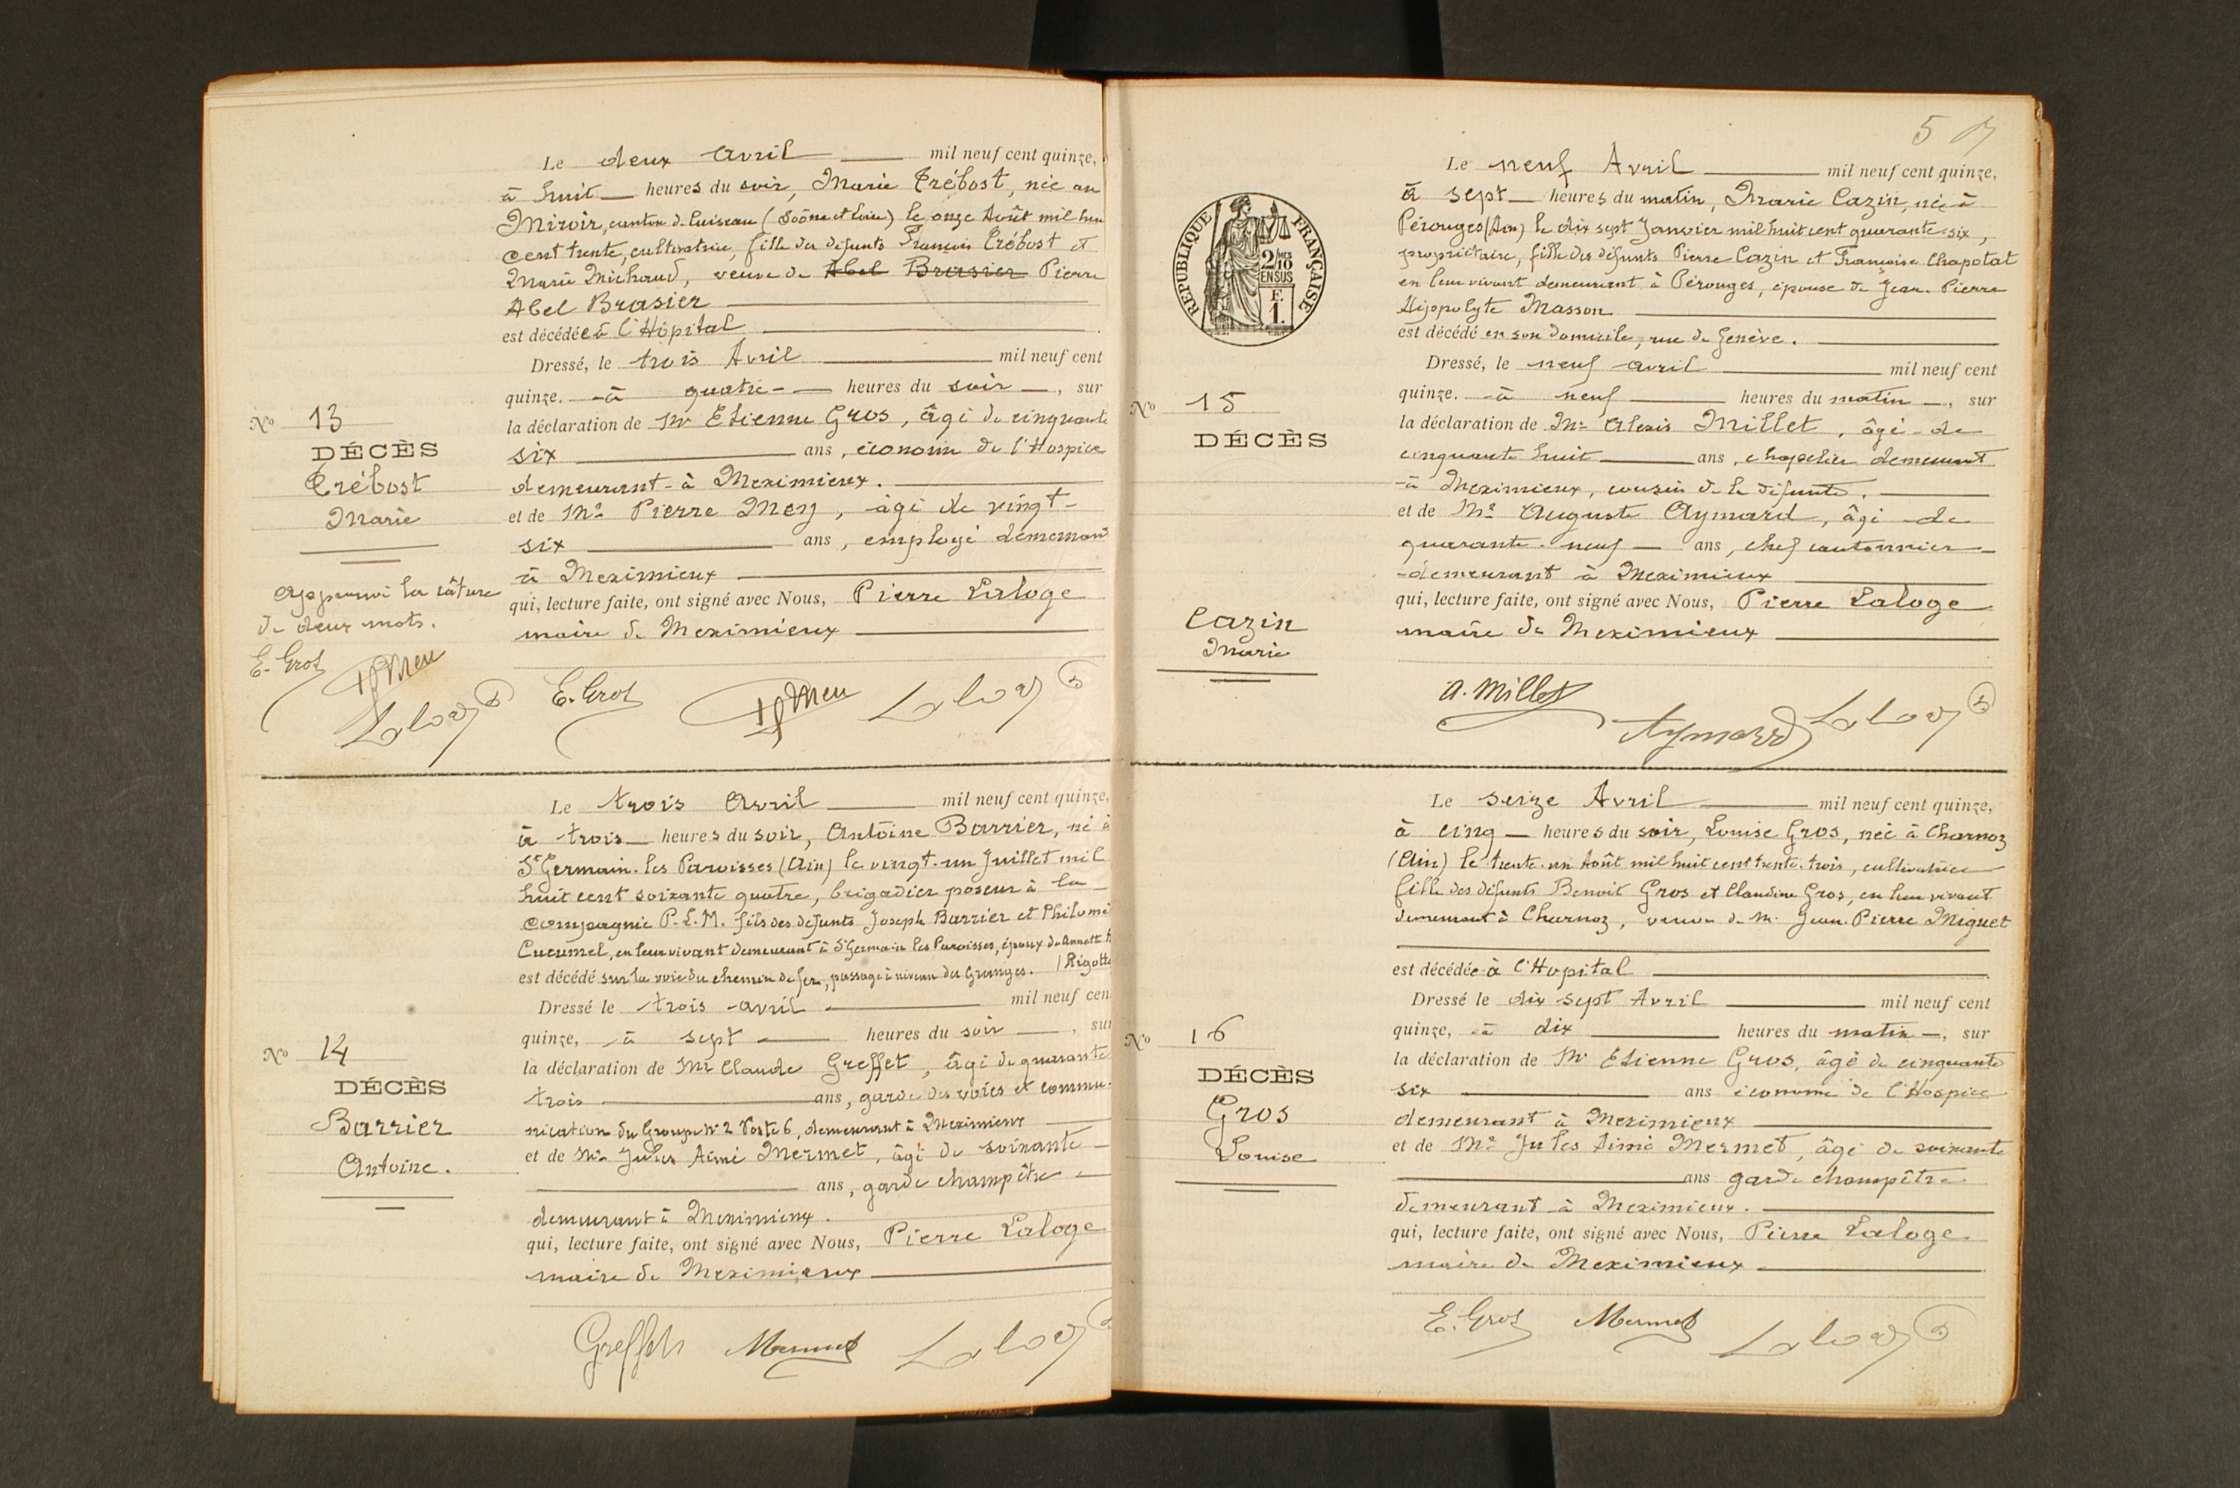 Le deux Avril mil neuf cent quinze,
à huit heures du soir, Marie Trébost, née au
Miroir, canton de Cuiseau (Saône et Loire) le onze Août mil huit
cent trente, cultivatrice, fille des défunts François Trébost et
Marie Michaud, veuve de Abel Brasier Pierre
Abel Brasier
est décédée à l'Hôpital
Dressé, le trois Avril mil neuf cent
quinze. à quatre heures du soir, sur
la déclaration de Mr Etienne Gros, âgé de cinquante
six ans, économe de l'Hospice
demeurant à Meximieux.
et de Mr Pierre Mey, âgé de vingt-
six ans, employé demeurant
à Meximieux
qui, lecture faite, ont signé avec Nous, Pierre Laloge
maire de Meximieux
No 13
DÉCÈS
Trébost
Marie
Approuvé la râture
de deux mots.
E. Gros
Laloge
E. Gros
Laloge
Le trois Avril mil neuf cent quinze,
à trois heures du soir, Antoine Barrier, né à
St Germain-les Paroisses (Ain) le vingt-un Juillet mil
huit cent soixante quatre, brigadier poseur à la
compagnie P.L.M. fils des défunts Joseph Barrier et
Cucumel, en leur vivant demeurant à St Germain les Paroisses, époux de Annette
est décédé sur la voie du chemin de fer, passage à niveau des Granges. Rigotte
Dressé le trois avril mil neuf cent
quinze, à sept heures du soir, sur
la déclaration de Mr Claude Greffet, âgé de quarante
trois ans, garde des voies et commu-
nication du Groupe No 2 Poste 6, demeurant à Meximieux
et de Mr Jules Aimé Mermet, âgé de soixante
ans, garde champêtre
demeurant à Meximieux.
qui, lecture faite, ont signé avec Nous, Pierre Laloge
maire de Meximieux
No 14
DÉCÈS
Barrier
Antoine.
Greffet Mermet Laloge
5
RÉPUBLIQUE FRANÇAISE
2/10 MES
EN SUS
F.
1.
Le neuf Avril mil neuf cent quinze,
à sept heures du matin, Marie Cazin, née à
Pérouges (Ain) le dix sept Janvier mil huit cent quarante-six,
propriétaire, fille des défunts Pierre Cazin et Françoise Chapotat
en leur vivant demeurant à Pérouges, épouse de Jean-Pierre
Hippolyte Masson
est décédé en son domicile, rue de Genève.
Dressé, le neuf avril mil neuf cent
quinze. à neuf heures du matin, sur
la déclaration de Mr Alexis Millet, âgé de
cinquante huit ans, chapelier demeurant
à Meximieux, cousin de la défunte.
et de Mr Auguste Aymard, âgé de
quarante-neuf ans, chef cantonnier
demeurant à Meximieux
qui, lecture faite, ont signé avec Nous, Pierre Laloge
maire de Meximieux
No 15
DÉCÈS
Cazin
Marie
A. Millet
Aymard Laloge
Le seize Avril mil neuf cent quinze,
à cinq heures du soir, Louise Gros, née à Charnoz
(Ain) le trente-un Août mil huit cent trente-trois, cultivatrice
fille des défunts Benoit Gros et Claudine Gros, en leur vivant
demeurant à Charnoz, veuve de Mr Jean-Pierre Miguet
est décédée à l'Hopital
Dressé le dix sept Avril mil neuf cent
quinze, à dix heures du matin, sur
la déclaration de Mr Etienne Gros, âgé de cinquante
six ans économe de l'Hospice
demeurant à Meximieux
et de Mr Jules Aimé Mermet, âgé de soixante
ans garde champêtre
demeurant à Meximieux.
qui, lecture faite, ont signé avec Nous, Pierre Laloge
maire de Meximieux
No 16
DÉCÈS
Gros
Louise
E. Gros Mermet Laloge